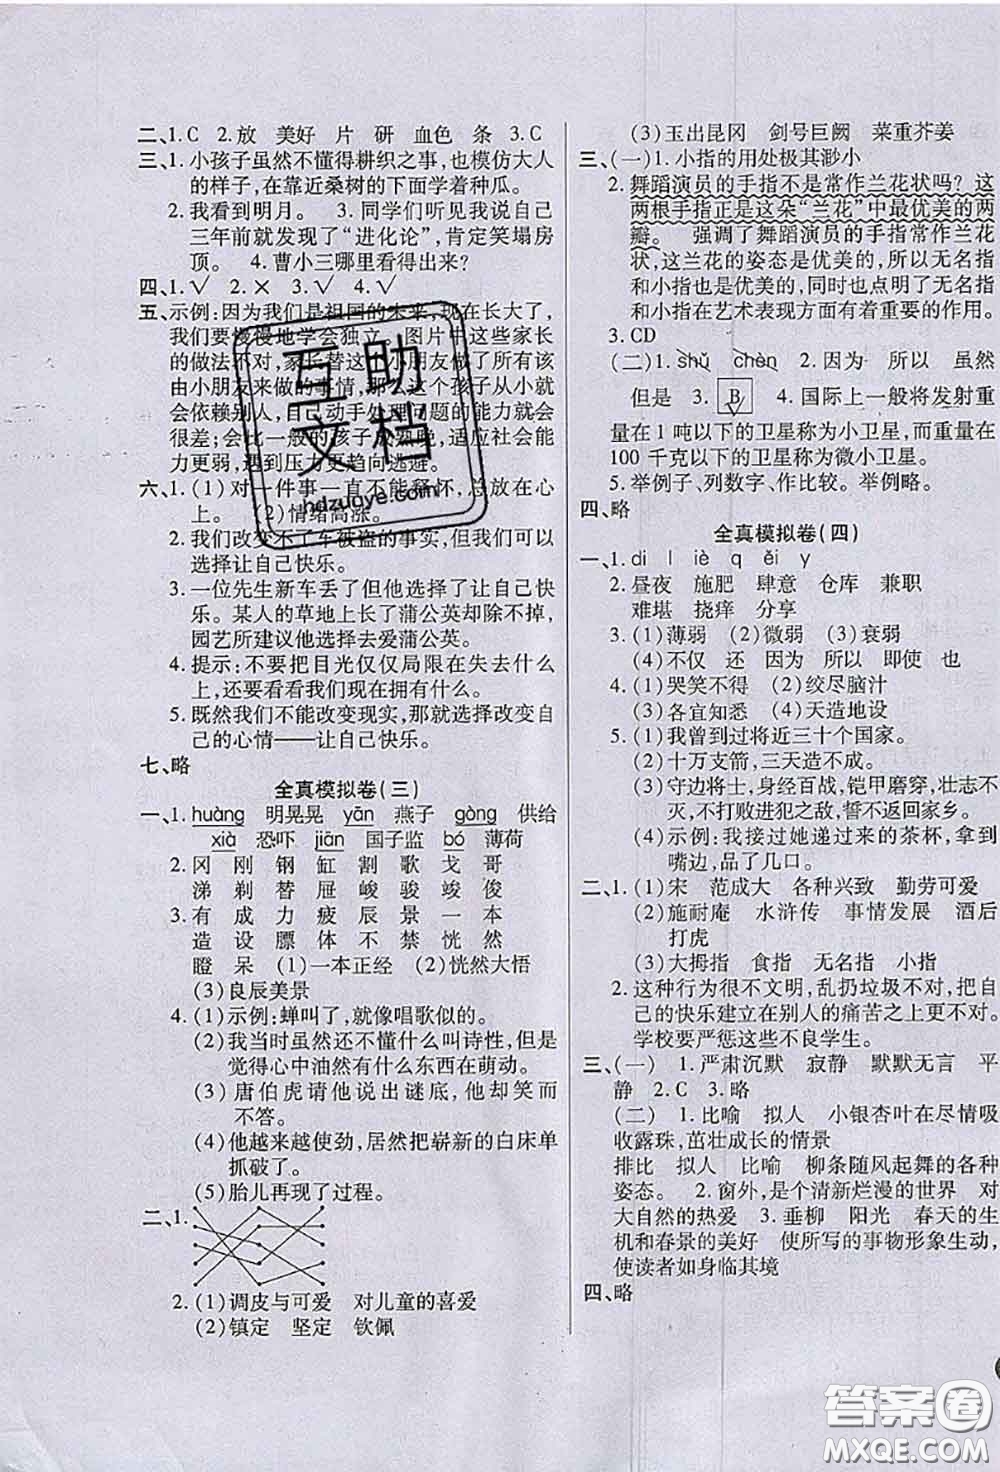 二、1.C 2.放 美好 片 研 血色 条 3.C
三、1.小孩子虽然不懂得耕织之事,也模仿大人
的样子,在靠近桑树的下面学着种瓜。
2.我看到明月。 3.同学们听见我说自己
三年前就发现了“进化论”,肯定笑塌房
顶。 4.曹小三哪里看得出来?
四、1.√ 2.× 3.√ 4.√
五、示例:因为我们是祖国的未来,现在长大了,
我们要慢慢地学会独立。图片中这些家长
的做法不对,家长替这个小朋友做了所有该
由小朋友来做的事情,那么这个孩子以后就
会依赖别人,自己动手处理问题的能力就会
很差;会比一般的孩子成熟晚,适应社会能
力更弱,遇到压力更趋向逃避。
六、1.(1)对一件事一直不能释怀,总放在心
上。 (2)情绪高涨。
2.我们改变不了车被盗的事实,但我们可以
让自己快乐。
3.一位先生新车丢了但他选择了让自己快
乐。某人的草地上长了蒲公英却除不掉,
园艺所建议他选择去爱蒲公英。
4.提示:不要把目光仅仅局限在失去什么
上,还要看看我们现在拥有什么。
5.既然我们不能改变现实,那就选择改变自
己的心情——让自己快乐。
七、略
全真模拟卷(三)
一、1.huàng 明晃晃 yān 燕子 gòng 供给
xià 恐吓 jiān 国子监 bó 薄荷
2.冈 刚 钢 缸 割 歌 戈 哥
涕 剃 替 屉 峻 骏 竣 俊
3.有 成 力 疲 辰 景 一 本
造 设 膘 体 不 禁 恍 然
瞪 呆 (1)一本正经 (2)恍然大悟
(3)良辰美景
4.(1)示例:蝉叫了,就像唱歌似的。
(2)我当时虽然还不懂什么叫诗性,但是
觉得心中油然有什么东西在萌动。
(3)唐伯虎请他说出谜底,他却笑而
不答。
(4)他越来越使劲,居然把崭新的白床单
抓破了。
(5)胎儿再现了过程。
二、1.
2.(1)调皮与可爱 对儿童的喜爱
(2)镇定 坚定 钦佩
(3)玉出昆冈 剑号巨阙 菜重芥姜
三、(一)1.小指的用处极其渺小
2.舞蹈演员的手指不是常作兰花状吗?这
两根手指正是这朵“兰花”中最优美的两
瓣。 强调了舞蹈演员的手指常作兰花
状,这兰花的姿态是优美的,所以无名指
和小指也是优美的,同时也点明了无名指
和小指在艺术表现方面有着重要的作用。
3.CD
(二)1.shǔ chèn 2.因为 所以 虽然
但是 3.B 4.国际上一般将发射重
量在1吨以下的卫星称为小卫星,而重量在
100千克以下的卫星称为微小卫星。
5.举例子、列数字、作比较。举例略。
四、略
全真模拟卷(四)
一、1.di l iè q ěi y
2.昼夜 施肥 肆意 仓库 兼职
难堪 挠痒 分享
3.(1)薄弱 (2)微弱 (3)衰弱
(4)不仅 还 因为 所以 即使 也
4.(1)哭笑不得 (2)绞尽脑汁
(3)各宜知悉 (4)天造地设
5.(1)我曾到过将近三十个国家。
(2)十万支箭,三天造不成。
(3)守边将士,身经百战,铠甲磨穿,壮志不
灭,不打败进犯之敌,誓不返回家乡。
(4)示例:我接过她递过来的茶杯,拿到
嘴边,品了几口。
二、1.(1)宋 范成大 各种兴致 勤劳可爱
(2)施耐庵 水浒传 事情发展 酒后
打虎
(3)大拇指 食指 无名指 小指
2.这种行为很不文明,乱扔垃圾不对,把自
己的快乐建立在别人的痛苦之上更不对。
学校要严惩这些不良学生。
三、(一) 1.严肃沉默 寂静 默默无言 平
静 2.C 3.略
(二) 1.比喻 拟人 小银杏叶在尽情吸
收露珠,茁壮成长的情景
排比 拟人 比喻 柳条随风起舞的各种
姿态。 2.窗外,是个清新烂漫的世界 对
大自然的热爱 3.垂柳 阳光 春天的生
机和春景的美好 使所写的事物形象生动,
使读者如身临其境
四、略
互助
文档
hdzuoye.com
答案圈
MXQE.COM